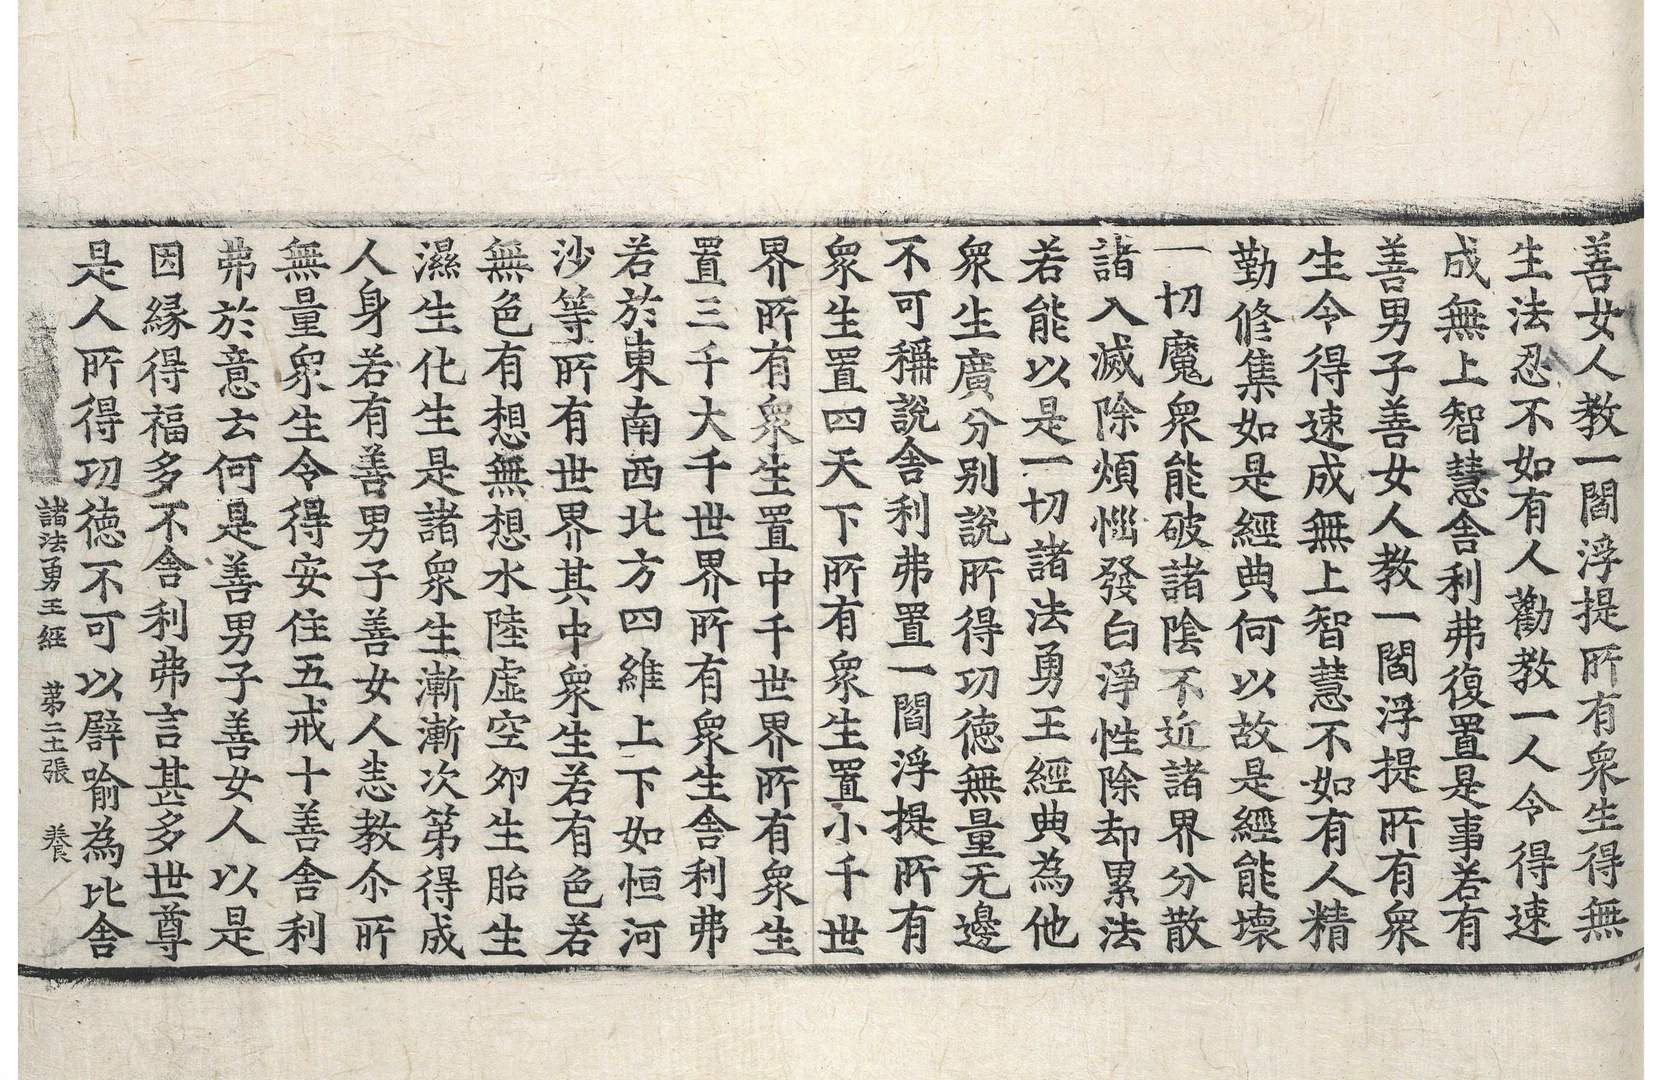 善女人教一閻浮提所有衆生得無
生法忍不如有人勸教一人令得速
成無上智慧舍利弗復置是事若有
善男子善女人教一閻浮提所有衆
生令得速成無上智慧不如有人精
勤修集如是經典何以故是經能壞
一切魔衆能破諸陰不近諸界分散
諸入滅除煩惱發白淨性除却累法
若能以是一切諸法勇王經典為他
衆生廣分别說所得功徳無量无邊
不可稱說舍利弗置一閻浮提所有
衆生置四天下所有衆生置小千世
界所有衆生置中千世界所有衆生
置三千大千世界所有衆生舍利弗
若於東南西北方四維上下如恒河
沙等所有世界其中衆生若有色若
無色有想無想水陸虛空夘生胎生
濕生化生是諸衆生漸漸次第得成
人身若有善男子善女人悉教尒所
無量衆生令得安住五戒十善舍利
弗於意云何是善男子善女人以是
因縁得福多不舍利弗言甚多世尊
是人所得功徳不可以譬喻為比舍
諸法勇王經 第二十張 養